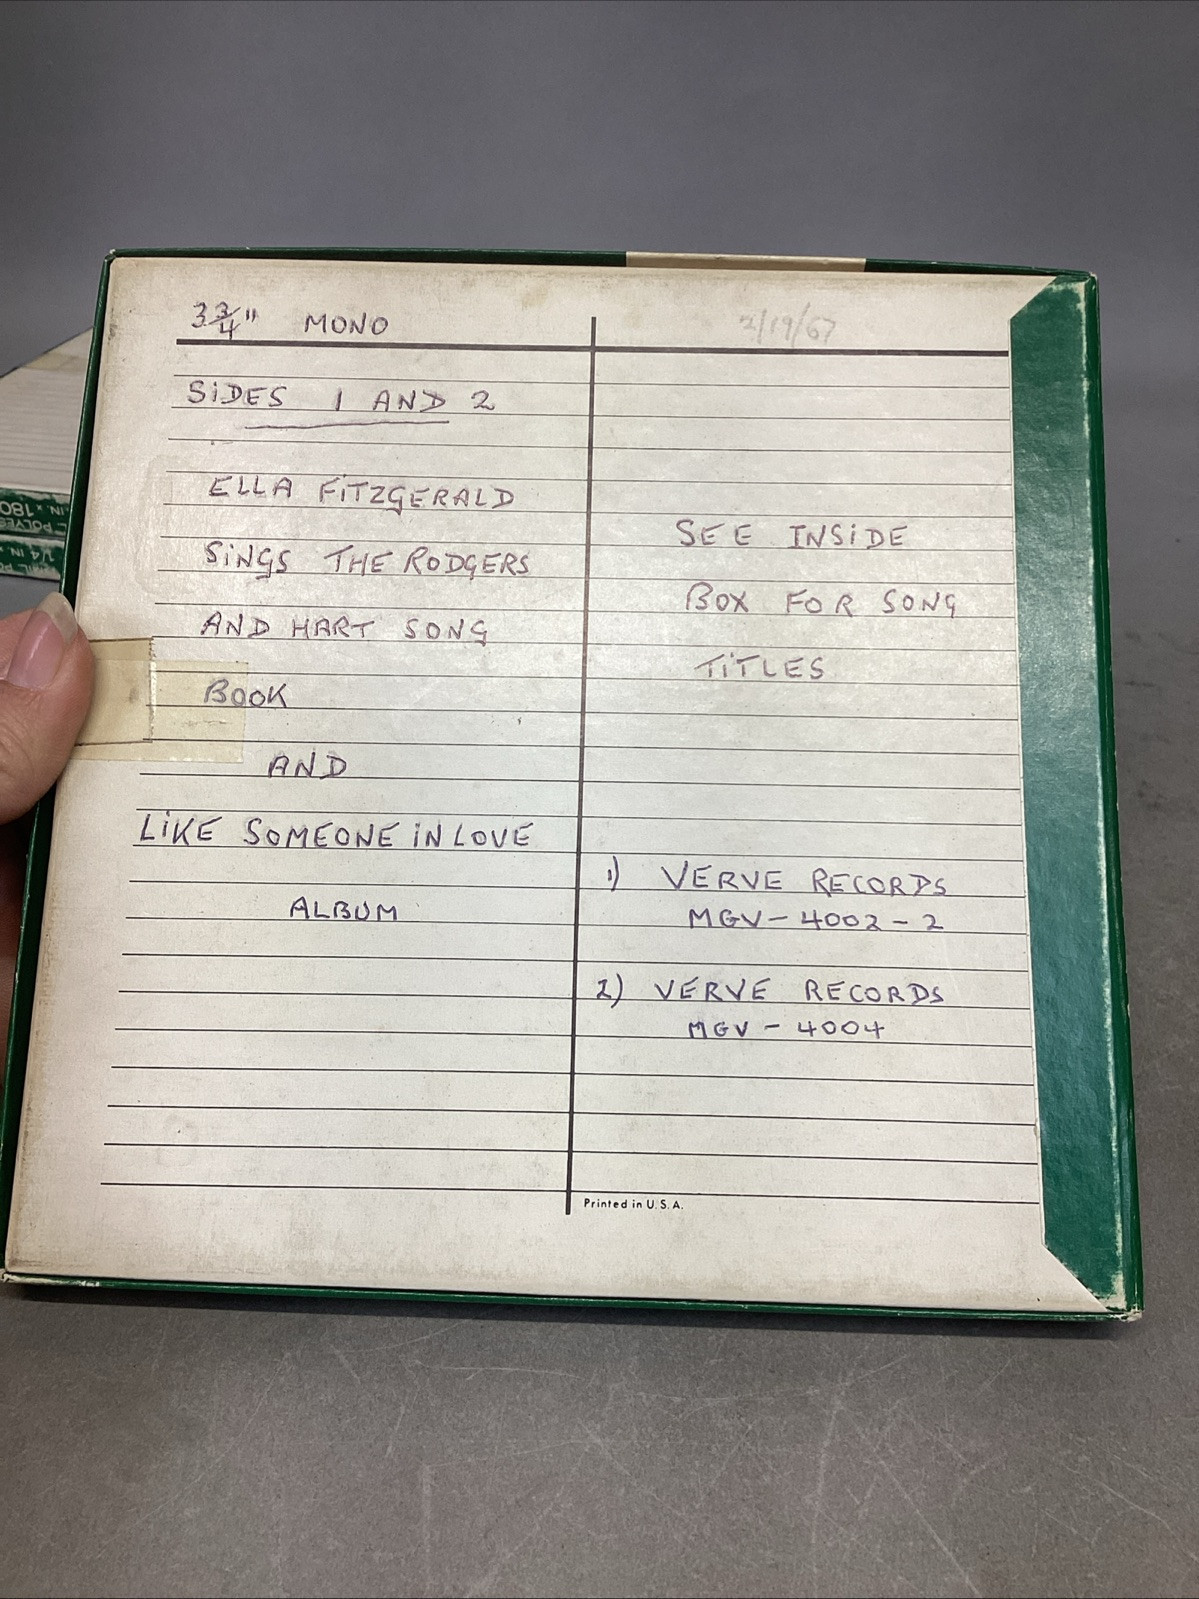 3 3/4" MONO
2/19/67
SIDES 1 AND 2
ELLA FITZGERALD
SINGS THE RODGERS
AND HART SONG
BOOK
AND
LIKE SOMEONE IN LOVE
ALBUM
SEE INSIDE
BOX FOR SONG
TITLES
1) VERVE RECORDS
MGV-4002-2
2) VERVE RECORDS
MGV-4004
Printed in U.S.A.
IN. x 180
1/4 IN.